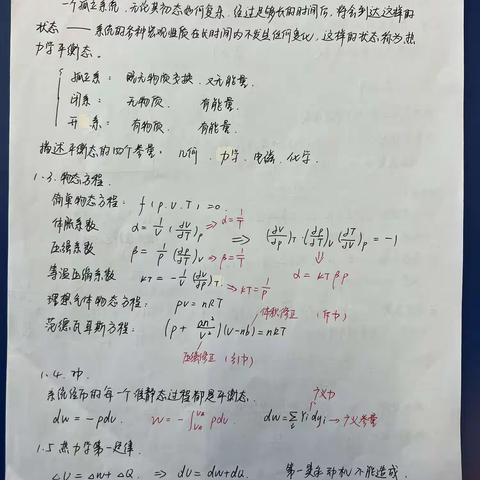 一个孤立系统，无论其初态如何复杂，经过足够长的时间后，将会到达这样的
状态 —— 系统的各种宏观性质在长时间内不发生任何变化，这样的状态称为热
力学平衡态。
孤立系：既无物质交换，又无能量.
闭系：无物质. 有能量.
开系：有物质. 有能量.
描述平衡态的四个参量：几何. 力学. 电磁. 化学.
1.3. 物态方程.
简单物态方程：f(p.V.T)=0.
体胀系数 α = 1/V (∂V/∂T)p ⇒ α = 1/T
压强系数 β = 1/p (∂p/∂T)V ⇒ β = 1/T
⇒ (∂V/∂p)T (∂p/∂T)V (∂T/∂V)p = -1
⇓
α = κT β p
等温压缩系数 κT = -1/V (∂V/∂p)T ⇒ κT = 1/p
理想气体物态方程：pV = nRT
体积修正（斥力）
范德瓦耳斯方程：(p + an²/V²)(V-nb) = nRT
压强修正（引力）
1.4. 功.
系统经历的每一个准静态过程都是平衡态.
广义力
dW = -pdV. W = -∫VA VB pdV. dW = Σi Yi dyi → 广义参量
1.5 热力学第一定律.
ΔU = ΔW + ΔQ. ⇒ dU = dW + dQ. 第一类永动机不能造成.